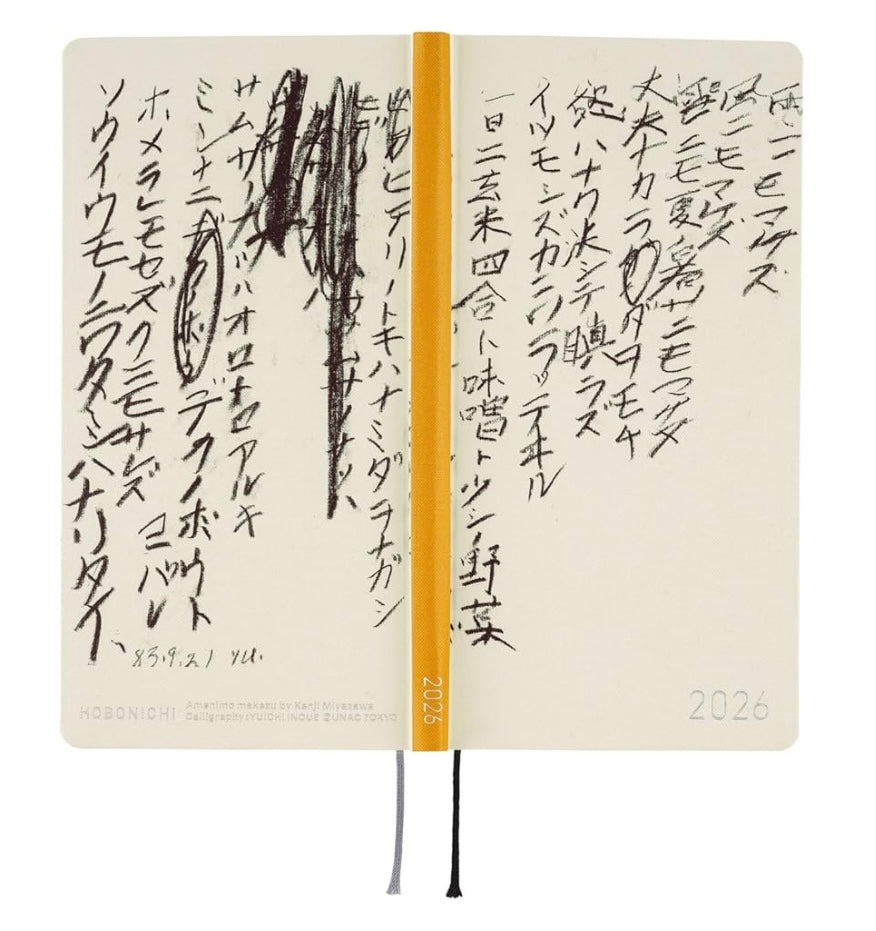 雨ニモマケズ
風ニモマケズ
雪ニモ夏ノ暑サニモマケヌ
丈夫ナカラダヲモチ
慾ハナク決シテ瞋ラズ
イツモシズカニワラッテヰル
一日ニ玄米四合ト味噌ト少シノ野菜
2026
2026
ヒデリノトキハナミダヲナガシ
サムサノナツハオロオロアルキ
ミンナニデクノボウト
ヨバレ
ホメラレモセズクニモサレズ
ソウイウモノニワタシハナリタイ
'83.9.21 YU.
HOBONICHI
Amenimo makezu by Kenji Miyazawa
Calligraphy:YUICHI INOUE ©UNAC TOKYO